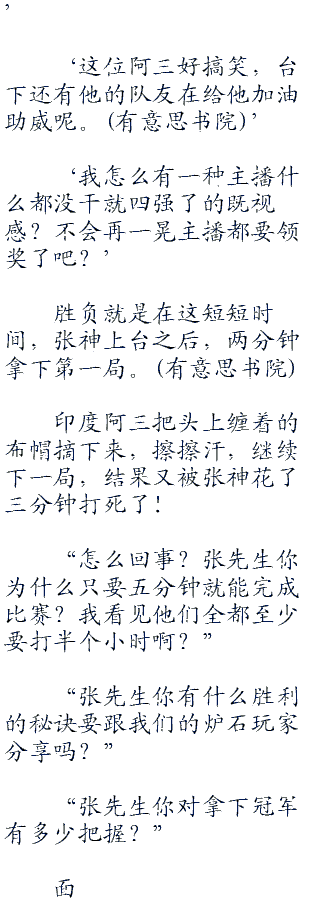 ’
‘这位阿三好搞笑，台
下还有他的队友在给他加油
助威呢。(有意思书院)’
‘我怎么有一种主播什
么都没干就四强了的既视
感？不会再一晃主播都要领
奖了吧？’
胜负就是在这短短时
间，张神上台之后，两分钟
拿下第一局。(有意思书院)
印度阿三把头上缠着的
布帽摘下来，擦擦汗，继续
下一局，结果又被张神花了
三分钟打死了！
“怎么回事？张先生你
为什么只要五分钟就能完成
比赛？我看见他们全都至少
要打半个小时啊？”
“张先生你有什么胜利
的秘诀要跟我们的炉石玩家
分享吗？”
“张先生你对拿下冠军
有多少把握？”
面